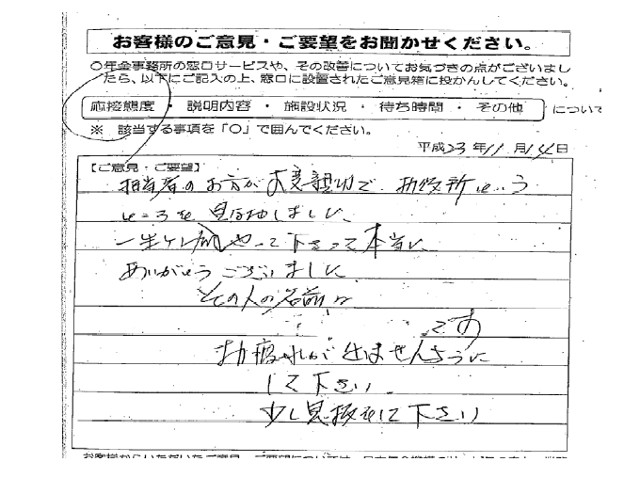 お客様のご意見・ご要望をお聞かせください。
○年金事務所の窓口サービスや、その改善についてお気づきの点がございまし
たら、以下にご記入の上、窓口に設置されたご意見箱に投かんしてください。
応接態度・説明内容・施設状況・待ち時間・その他 について
※ 該当する事項を「○」で囲んでください。
平成23年11月14日
【ご意見・ご要望】
担当者のお方が大変親切で、お役所という
ところを見直しました。
一生ケン命やって下さって本当に
ありがとうございました
その人の名前は
です
お疲れが出ませんように
して下さい
少し見
して下さい